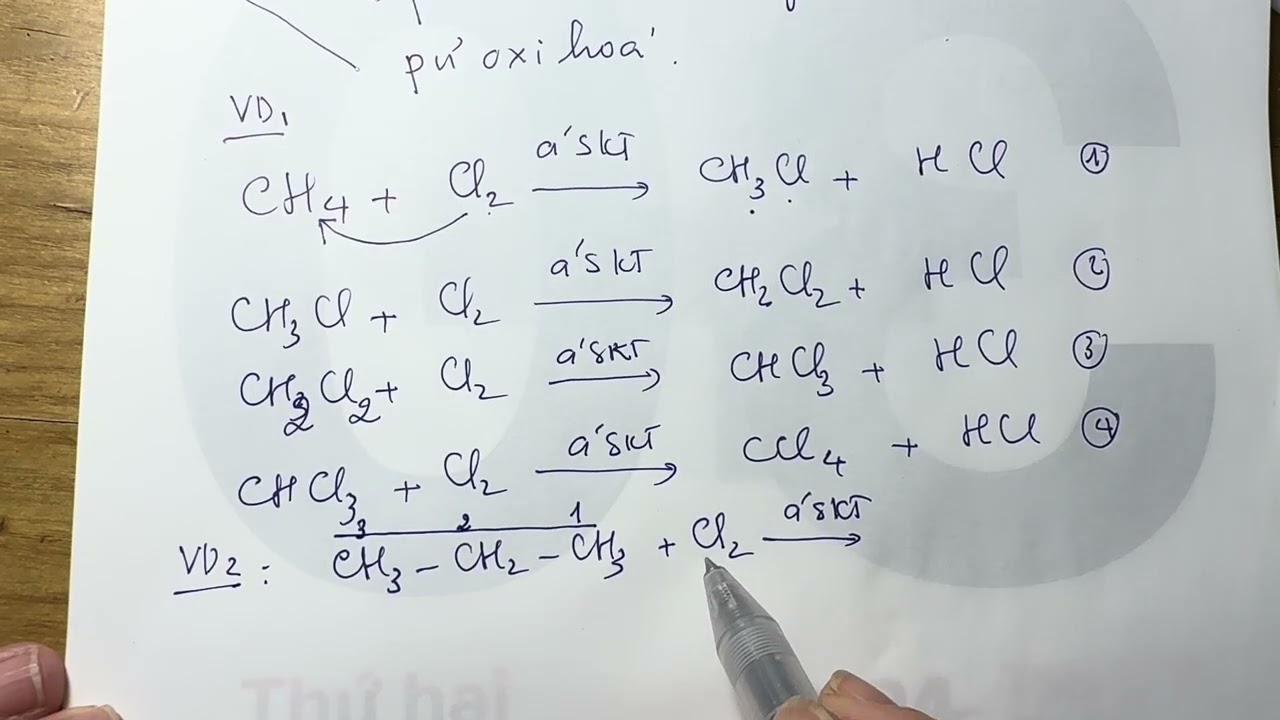 pứ oxi hoá.
VD1
CH4 + Cl2 a's KT → CH3Cl + HCl ①
CH3Cl + Cl2 a's KT → CH2Cl2 + HCl ②
CH2Cl2 + Cl2 a's KT → CHCl3 + HCl ③
CHCl3 + Cl2 a's KT → CCl4 + HCl ④
3 2 1
VD2 : CH3 – CH2 – CH3 + Cl2 a's KT →
Thứ hai